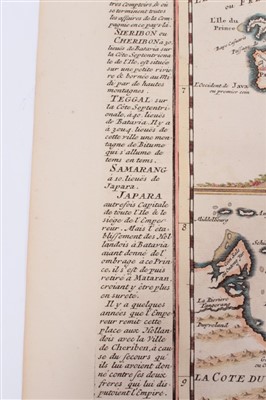 tres Comptoirs, & où
se terminent toutes
les affaires de la Com-
pagnie en ce pays là.
SIERIBON ou
CHERIBON a 50.
lieuës de Batavia sur
la Côte Septentriona-
le de l'Ile, est située
sur une petite rivie-
re & bornée au Mi-
di par de hautes
montagnes.
TEGGAL sur
la Côte Septentri-
onale, à 40. lieuës
de Batavia. Il y a
à 3 ou 4. lieuës de
cette ville une mon-
tagne de Bitume
qui s'allume de
tems en tems.
SAMARANG
à 10. lieuës de
Japara.
JAPARA
autrefois Capitale
de toute l'Ile & le
siege de l'Empe-
reur. Mais l'éta-
blissement des Hol-
landois à Batavia
aiant donné de l'
ombrage à ce Prin-
ce, il s'est de puis
retiré a Mataran,
croiant y être plus
en sureté.
Il y a quelques
années que l'Empe-
reur remit cette
place aux Hollan-
dois avec la Ville
de Cheribon, à cau-
se du secours qu'
ils lui avoient don-
né contre ses deux
freres qui lui dis-
putoient l'Empire.
7
8
9
L'Ile du
Prince
L'Occident de JAVA
en premier son
Middelbourg
La Riviere
Tangerang
LA COTE DU